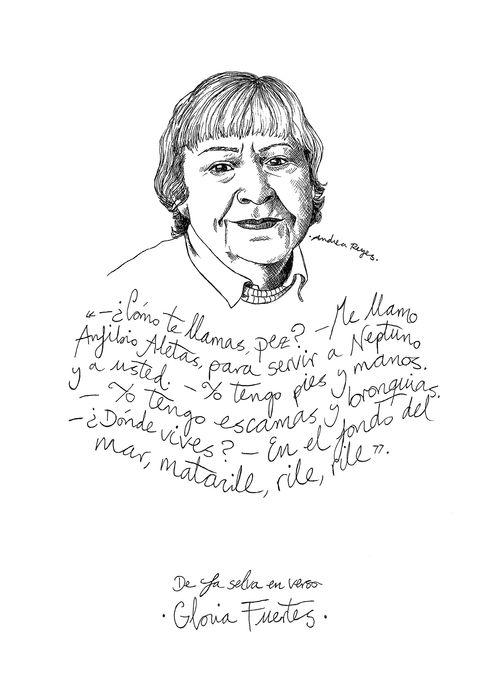 ·Andrea Reyes.
«–¿Cómo te llamas, pez? – Me llamo
Anfibio Aletas, para servir a Neptuno
y a usted. – Yo tengo pies y manos.
– Yo tengo escamas y bronquias.
– ¿Dónde vives? – En el fondo del
mar, matarile, rile, rile».
De La selva en verso
· Gloria Fuertes ·